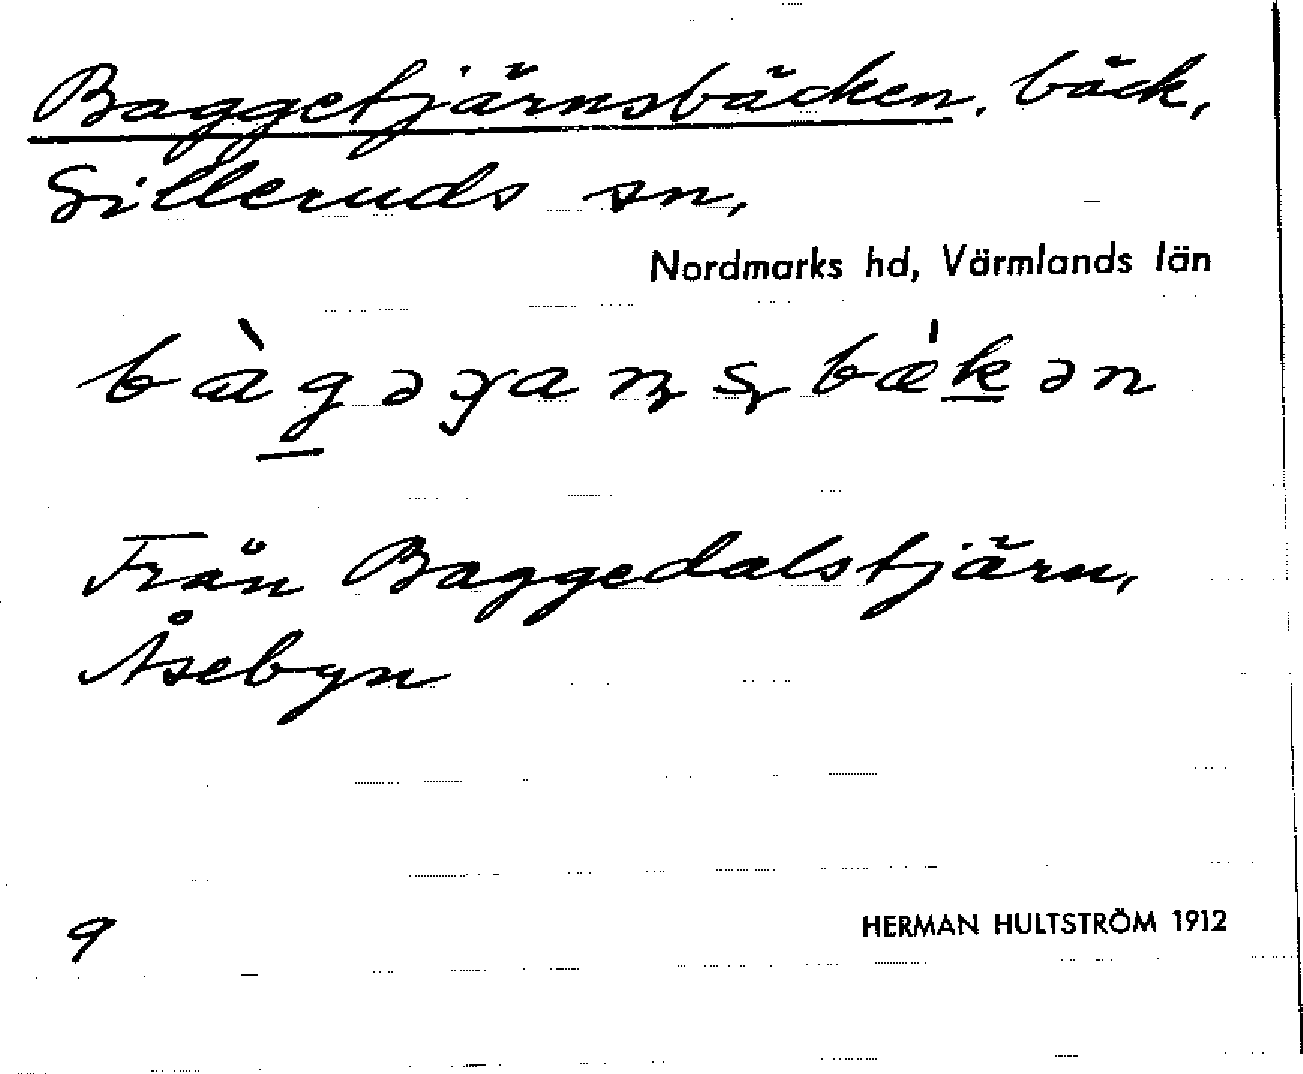 Baggetjärnsbäcken, bäck,
Silleruds sn,
Nordmarks hd, Värmlands län
Från Baggedalstjärn,
Åsebyn
9
HERMAN HULTSTRÖM 1912